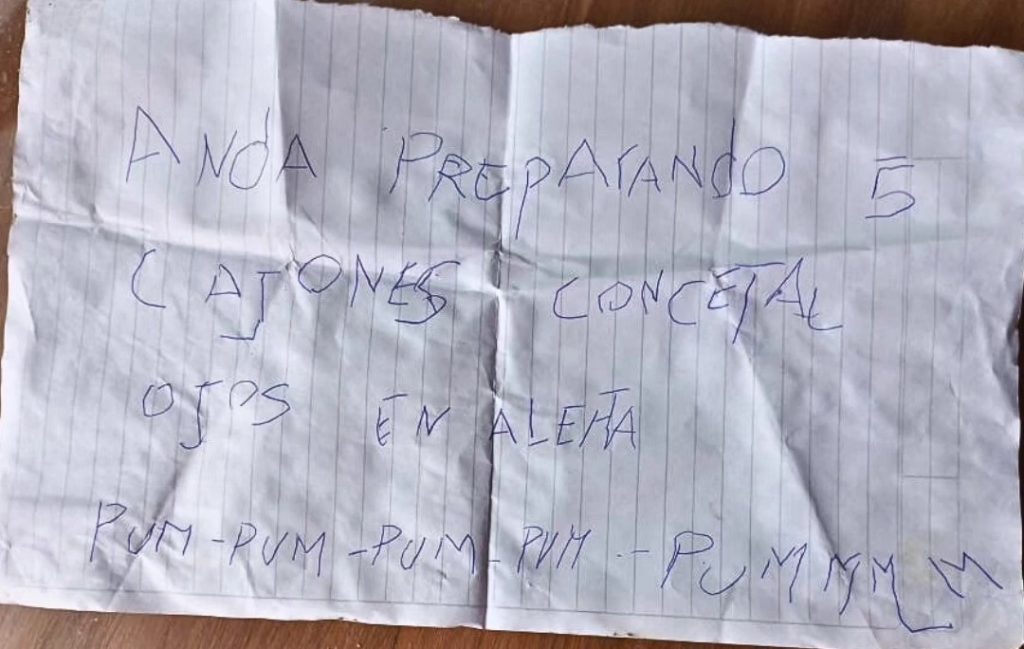 ANDA PREPARANDO 5
CAJONES CONCEJAL
OJOS EN ALERTA
PUM-PUM-PUM-PUM-PUMMMMM